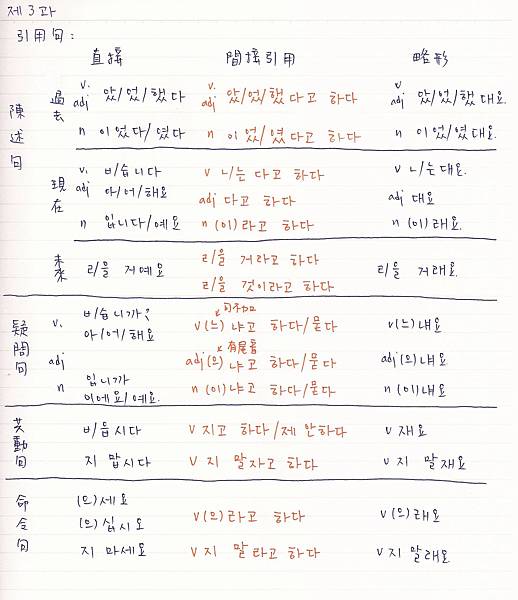 제 3 과
引用句:
直接 間接引用 略形
陳述句
過去 v. adj 았/었/했다 v. adj 았/었/했다고 하다 v. adj 았/었/했대요.
n 이었다/였다 n 이었/였다고 하다 n 이었/였대요.
現在 v. ㅂ/습니다 v ㄴ/는다고 하다 v ㄴ/는대요.
adj 아/어/해요 adj 다고 하다 adj 대요
n 입니다/예요 n (이)라고 하다 n (이)래요.
未來 ㄹ/을 거예요 ㄹ/을 거라고 하다 ㄹ/을 거래요.
ㄹ/을 것이라고 하다
疑問句
v. ㅂ/습니까? 아/어/해요 v(느)냐고 하다/묻다 v(느)냬요
有尾音
adj adj(으)냐고 하다/묻다 adj(으)냬요
n 입니까 이에요/예요. n (이)냐고 하다/묻다 n (이)냬요
共動句
ㅂ/읍시다 v 자고 하다/제안하다 v 재요
지 맙시다 v 지 말자고 하다 v 지 말재요
命令句
(으)세요
(으)십시오 v(으)라고 하다 v(으)래요
지 마세요 v 지 말라고 하다 v 지 말래요